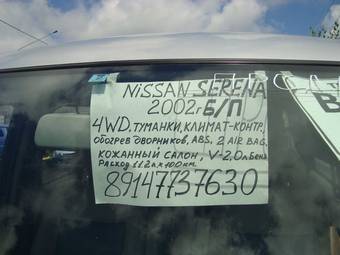 NISSAN SERENA
2002г Б/П
4WD, ТУМАНКИ, КЛИМАТ-КОНТР,
ОБОГРЕВ ДВОРНИКОВ, ABS, 2 AIR BAG,
КОЖАННЫЙ САЛОН, V-2,0л.Бенз
РАСХОД 11.2л х 100км.
89147737630